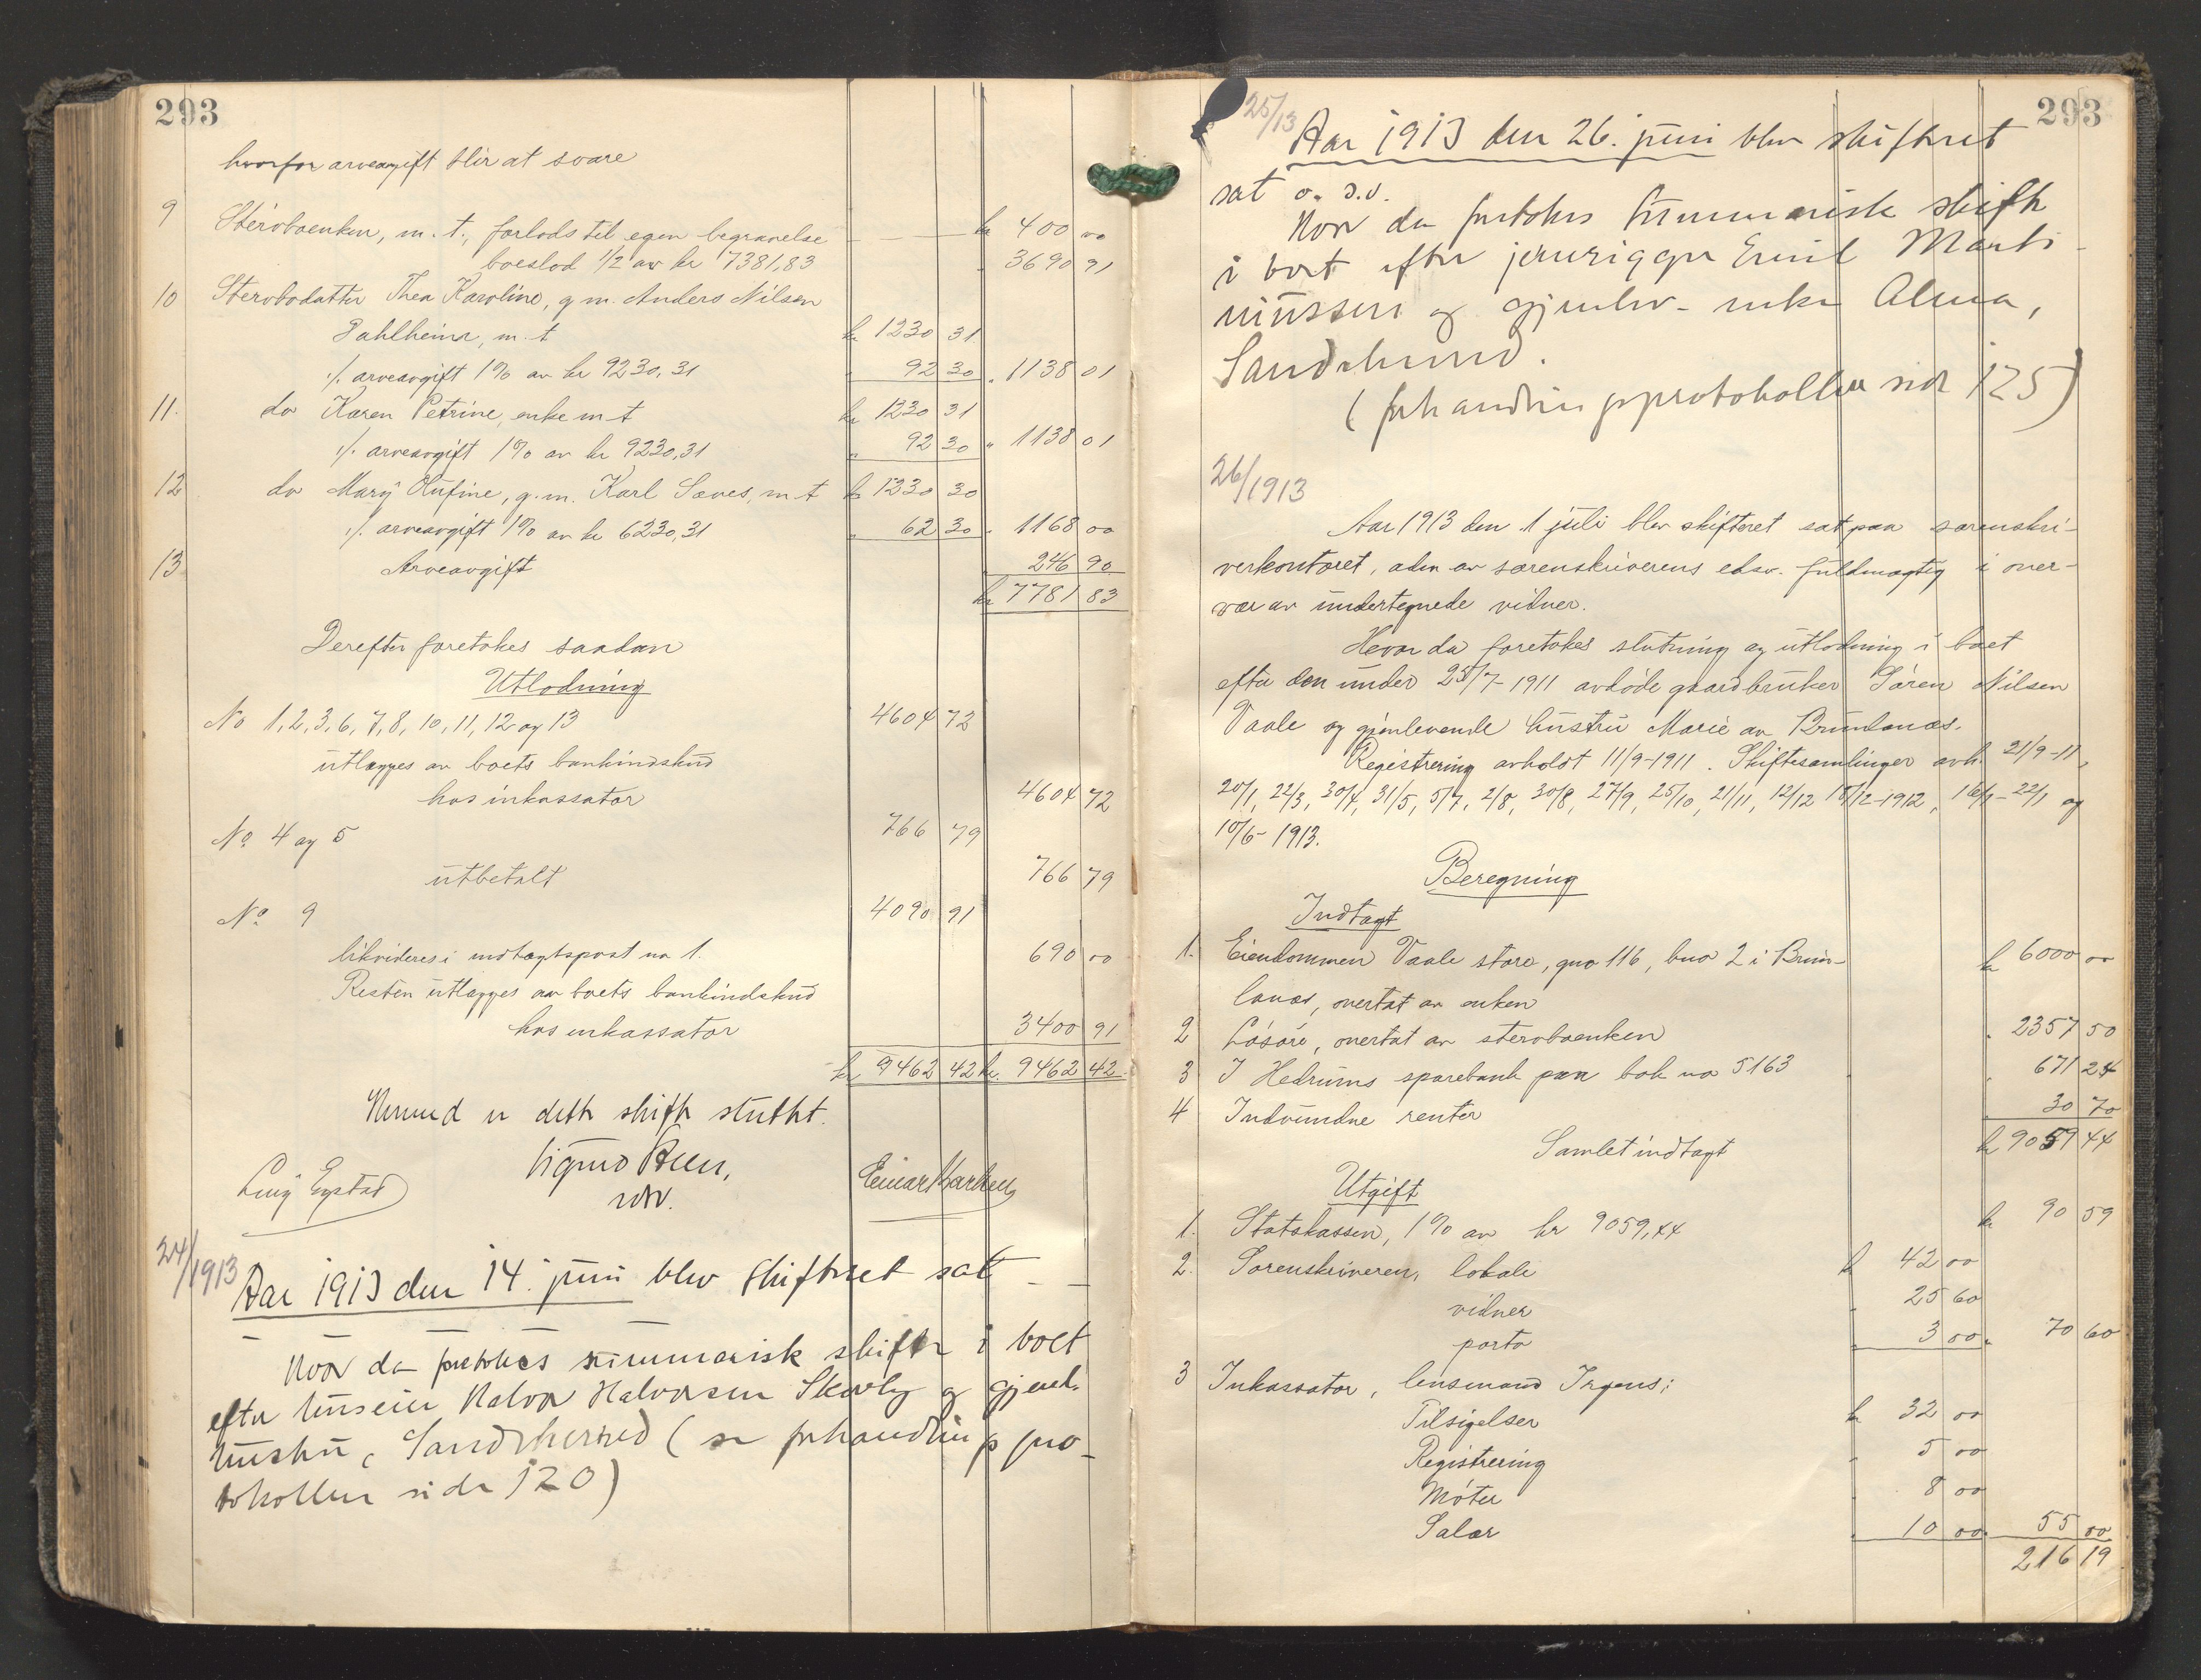 293
hvorfor arveavgift blir at svare
9 Stervboenken, m. t., forlods til egen begravelse kr 400 00
boeslod 1/2 av kr 7381,83 " 3690 91
10 Stervbodatter Thea Karoline, g. m. Anders Nilsen
Dahlheim, m. t kr 1230 31
./. arveavgift 1% av kr 9230,31 " 92 30 " 1138 01
11. do Karen Petrine, enke m t kr 1230 31
./. arveavgift 1% av kr 9230,31 " 92 30 " 1138 01
12 do Mary Olufine, g. m. Karl Sæves, m t kr 1230 30
./. arveavgift 1% av kr 6230,31 " 62 30 " 1168 00
13 Arveavgift 246 90
kr 7781 83
Derefter foretokes saadan
Utlodning
No 1, 2, 3, 6, 7, 8, 10, 11, 12 og 13 4604 72
utlægges av boets bankindskud
hos inkassator 4604 72
No 4 og 5 766 79
utbetalt 766 79
No 9 4090 91
likvideres i indtægtspost no 1. 690 00
Resten utlægges av boets bankindskud
hos inkassator 3400 91
kr 9462 42 kr. 9462 42
Hermed er dette skifte sluttet.
Einar
24/1913
Aar 1913 den 14. juni blev skifteret sat — —
— — — — —
Hvor da foretokes summarisk skifte i boet
efter huseier Halvor Halvorsen Skarby og gjenl.
hustru, Sandeherred (se forhandlingspro-
tokollen side 120)
293
25/13
Aar 1913 den 26. juni blev skifteret
sat o. s. v.
Hvor da foretokes summarisk skifte
i boet efter jernrigger Emil Marti-
niussen og gjenlev. enke Alma,
Sandeherred.
(forhandlingsprotokollen side 125)
26/1913
Aar 1913 den 1 juli blev skifteret sat paa sorenskri-
verkontoret, adm. av sorenskriverens edsv. fuldmægtig i over-
vær av undertegnede vidner.
Hvor da foretokes slutning og utlodning i boet
efter den under 25/7-1911 avdøde gaardbruker Søren Nilsen
Vaale og gjenlevende hustru Marie av Brunlanæs.
Registrering avholdt 11/9-1911. Skiftesamlinger avh. 21/9-11,
20/1, 22/3, 30/4, 31/5, 5/7, 2/8, 30/8, 27/9, 25/10, 21/11, 12/12 18/12-1912, 16/1- 22/1 og
10/6- 1913.
Beregning
Indtægt
1. Eiendommen Vaale store, gno 116, bno 2 i Brun- kr 6000 00
lanæs, overtat av enken
2 Løsøre, overtat av stervboenken " 2357 50
3 I Hedrums sparebank paa bok no 5163 " 671 24
4 Indvundne renter " 30 70
Samlet indtægt kr 9059 44
Utgift
1. Statskassen, 1% av kr 9059,44 kr 90 59
2. Sorenskriveren, lokale kr 42 00
vidner " 25 60
porto " 3 00 " 70 60
3 Inkassator, lensmand Irgens;
Tilsigelser kr 32 00
Registrering " 5 00
Møter " 8 00
Salær " 10 00 " 55 00
216 19